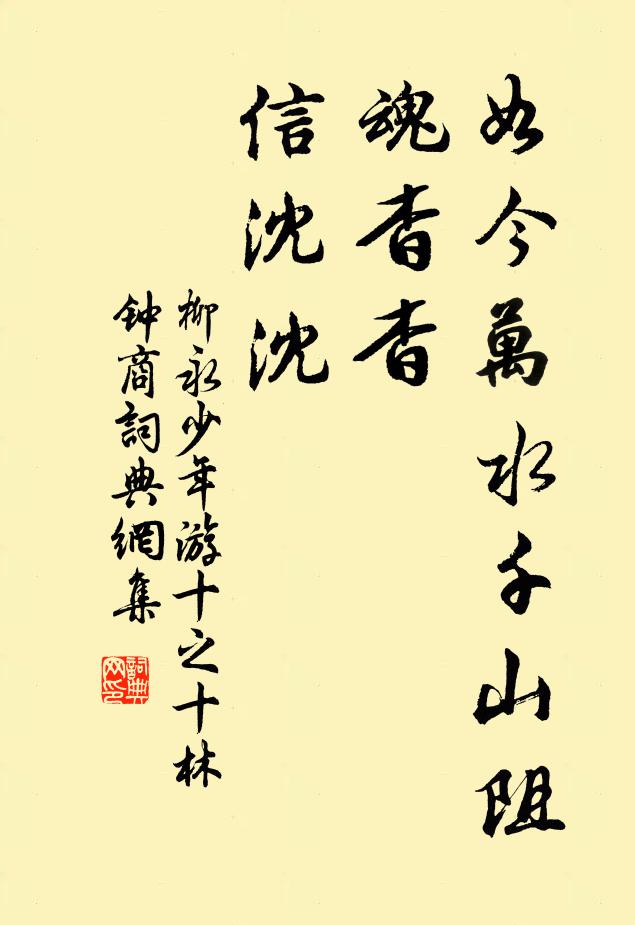 如今萬水千山阻
魂杳杳
信沈沈
柳永少年游十之十林
鈡商詞典網集
詞典
网印